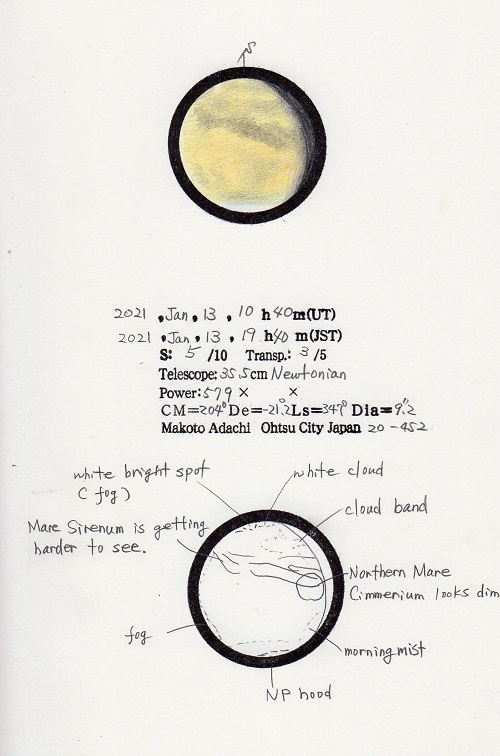 2021 , Jan , 13 , 10 h 40 m(UT)
2021 , Jan , 13 , 19 h 40 m (JST)
S: 5 /10 Transp.: 3 /5
Telescope: 35.5cm Newtonian
Power: 579 × ×
CM=204° De=-21.°2 Ls=347° Dia=9."2
Makoto Adachi Ohtsu City Japan 20-452
white bright spot
( fog )
white cloud
cloud band
Mare Sirenum is getting
harder to see.
Northern Mare
Cimmerium looks dim
fog
morning mist
NP hood